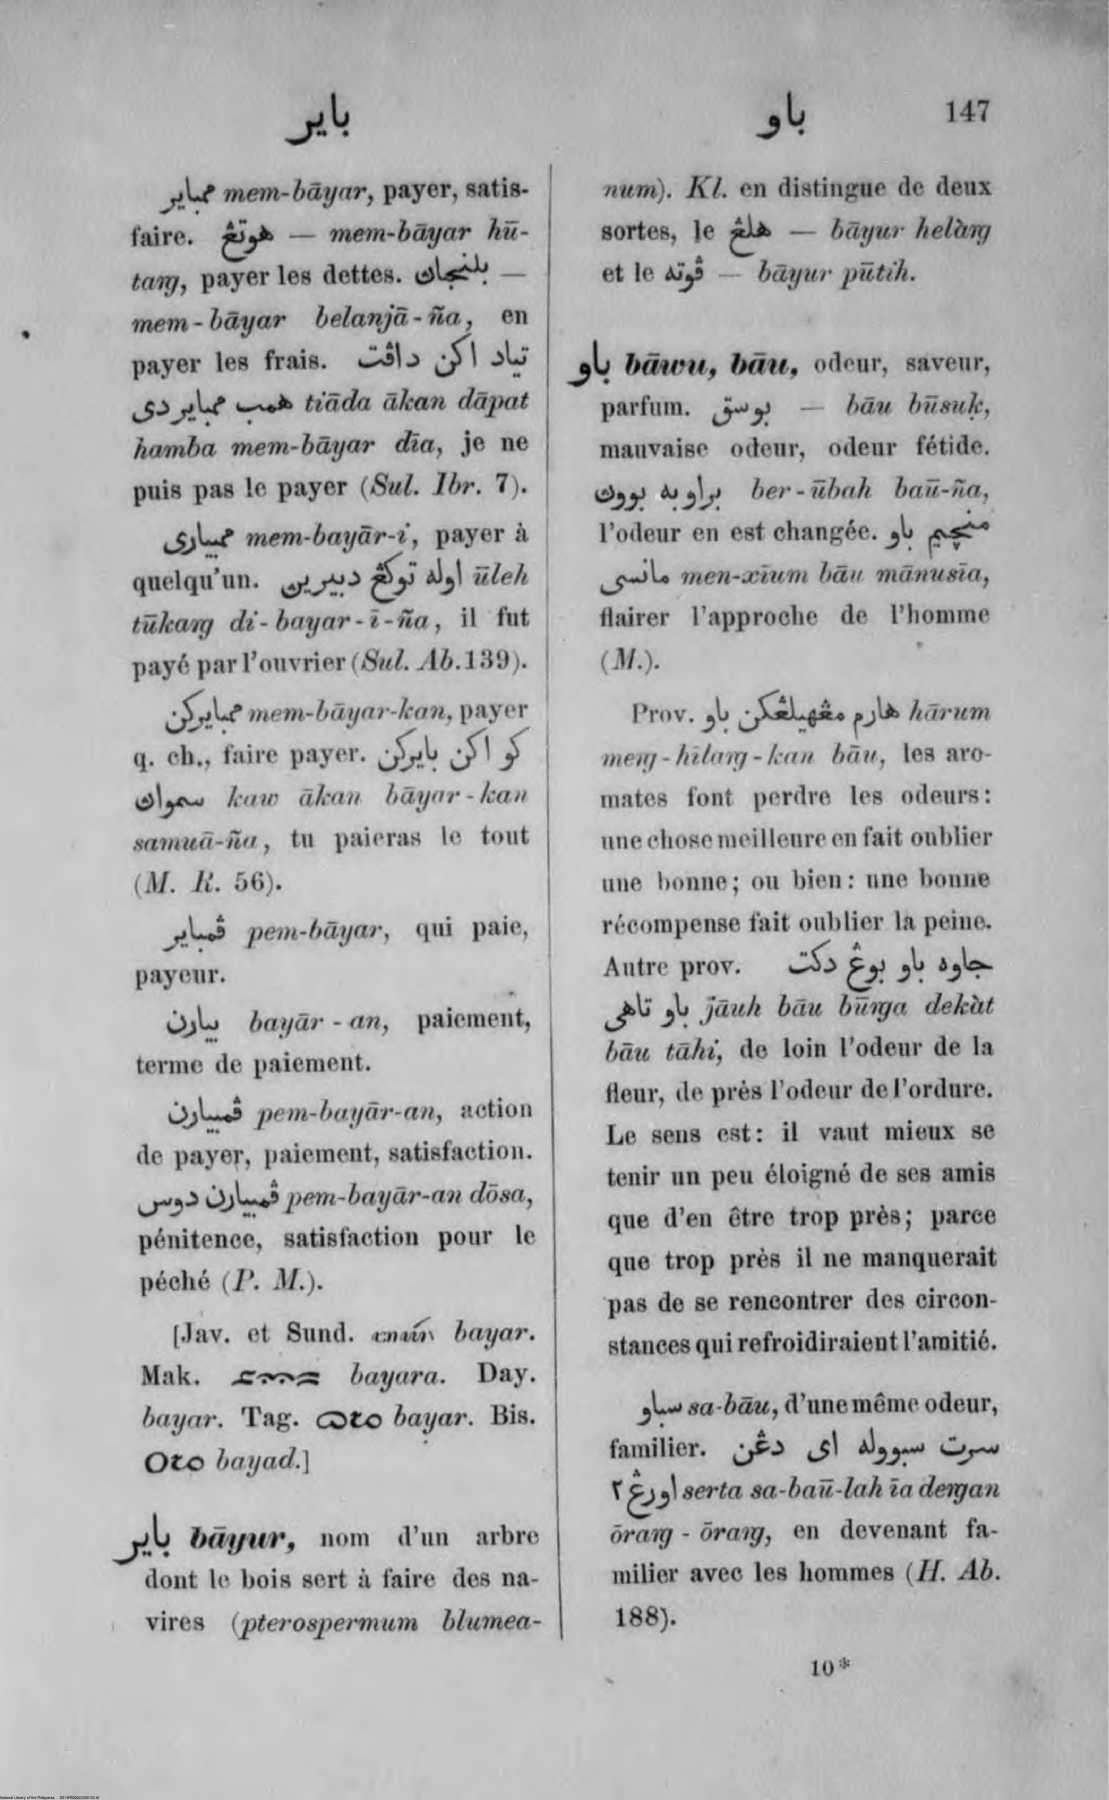 باير
باو 147
ممباير mem-bāyar, payer, satis-
faire. هوتڠ — mem-bāyar hū-
taŋ, payer les dettes. بلنجاڽ —
mem-bāyar belanjā-ña, en
payer les frais. تياد اكن داڤت
همب ممباير دي tiāda ākan dāpat
hamba mem-bāyar dīa, je ne
puis pas le payer (Sul. Ibr. 7).
ممبياري mem-bayār-i, payer à
quelqu'un. اوله توكڠ دبيرين ūleh
tūkaŋ di-bayar-ī-ña, il fut
payé par l'ouvrier (Sul. Ab. 139).
ممبايركن mem-bāyar-kan, payer
q. ch., faire payer. كو اكن بايركن
سمواڽ kaw ākan bāyar-kan
samuā-ña, tu paieras le tout
(M. R. 56).
ڤمباير pem-bāyar, qui paie,
payeur.
بيارن bayār-an, paiement,
terme de paiement.
ڤمبيارن pem-bayār-an, action
de payer, paiement, satisfaction.
ڤمبيارن دوس pem-bayār-an dōsa,
pénitence, satisfaction pour le
péché (P. M.).
[Jav. et Sund. bayar.
Mak. bayara. Day.
bayar. Tag. bayar. Bis.
bayad.]
باير bāyur, nom d'un arbre
dont le bois sert à faire des na-
vires (pterospermum blumea-
num). Kl. en distingue de deux
sortes, le هلڠ — bāyur helàŋ
et le ڤوته — bāyur pūtih.
باو bāwu, bāu, odeur, saveur,
parfum. بوسق — bāu būsuḳ,
mauvaise odeur, odeur fétide.
براوبه بووڽ ber-ūbah baū-ña,
l'odeur en est changée. منچيم باو
مانسي men-xīum bāu mānusīa,
flairer l'approche de l'homme
(M.).
Prov. هارم مڠهيلڠكن باو hārum
meŋ-hīlaŋ-kan bāu, les aro-
mates font perdre les odeurs:
une chose meilleure en fait oublier
une bonne; ou bien: une bonne
récompense fait oublier la peine.
Autre prov. جاوه باو بوڠ دكت
باو تاهي jāuh bāu būŋa dekàt
bāu tāhi, de loin l'odeur de la
fleur, de près l'odeur de l'ordure.
Le sens est: il vaut mieux se
tenir un peu éloigné de ses amis
que d'en être trop près; parce
que trop près il ne manquerait
pas de se rencontrer des circon-
stances qui refroidiraient l'amitié.
سباو sa-bāu, d'une même odeur,
familier. سرت سبووله اي دڠن
اورڠ ٢ serta sa-baū-lah īa deŋan
ōraŋ-ōraŋ, en devenant fa-
milier avec les hommes (H. Ab.
188).
10*